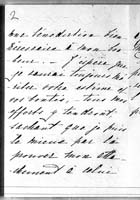 2
une bénédiction bien
nécessaire à mon bon
heur. — J'espère que
je saurai toujours mé
riter votre estime et
vos bontés, — tous mes
efforts y tendront,
sachant que je puis
le mieux par là
prouver mon atta
chement à celui